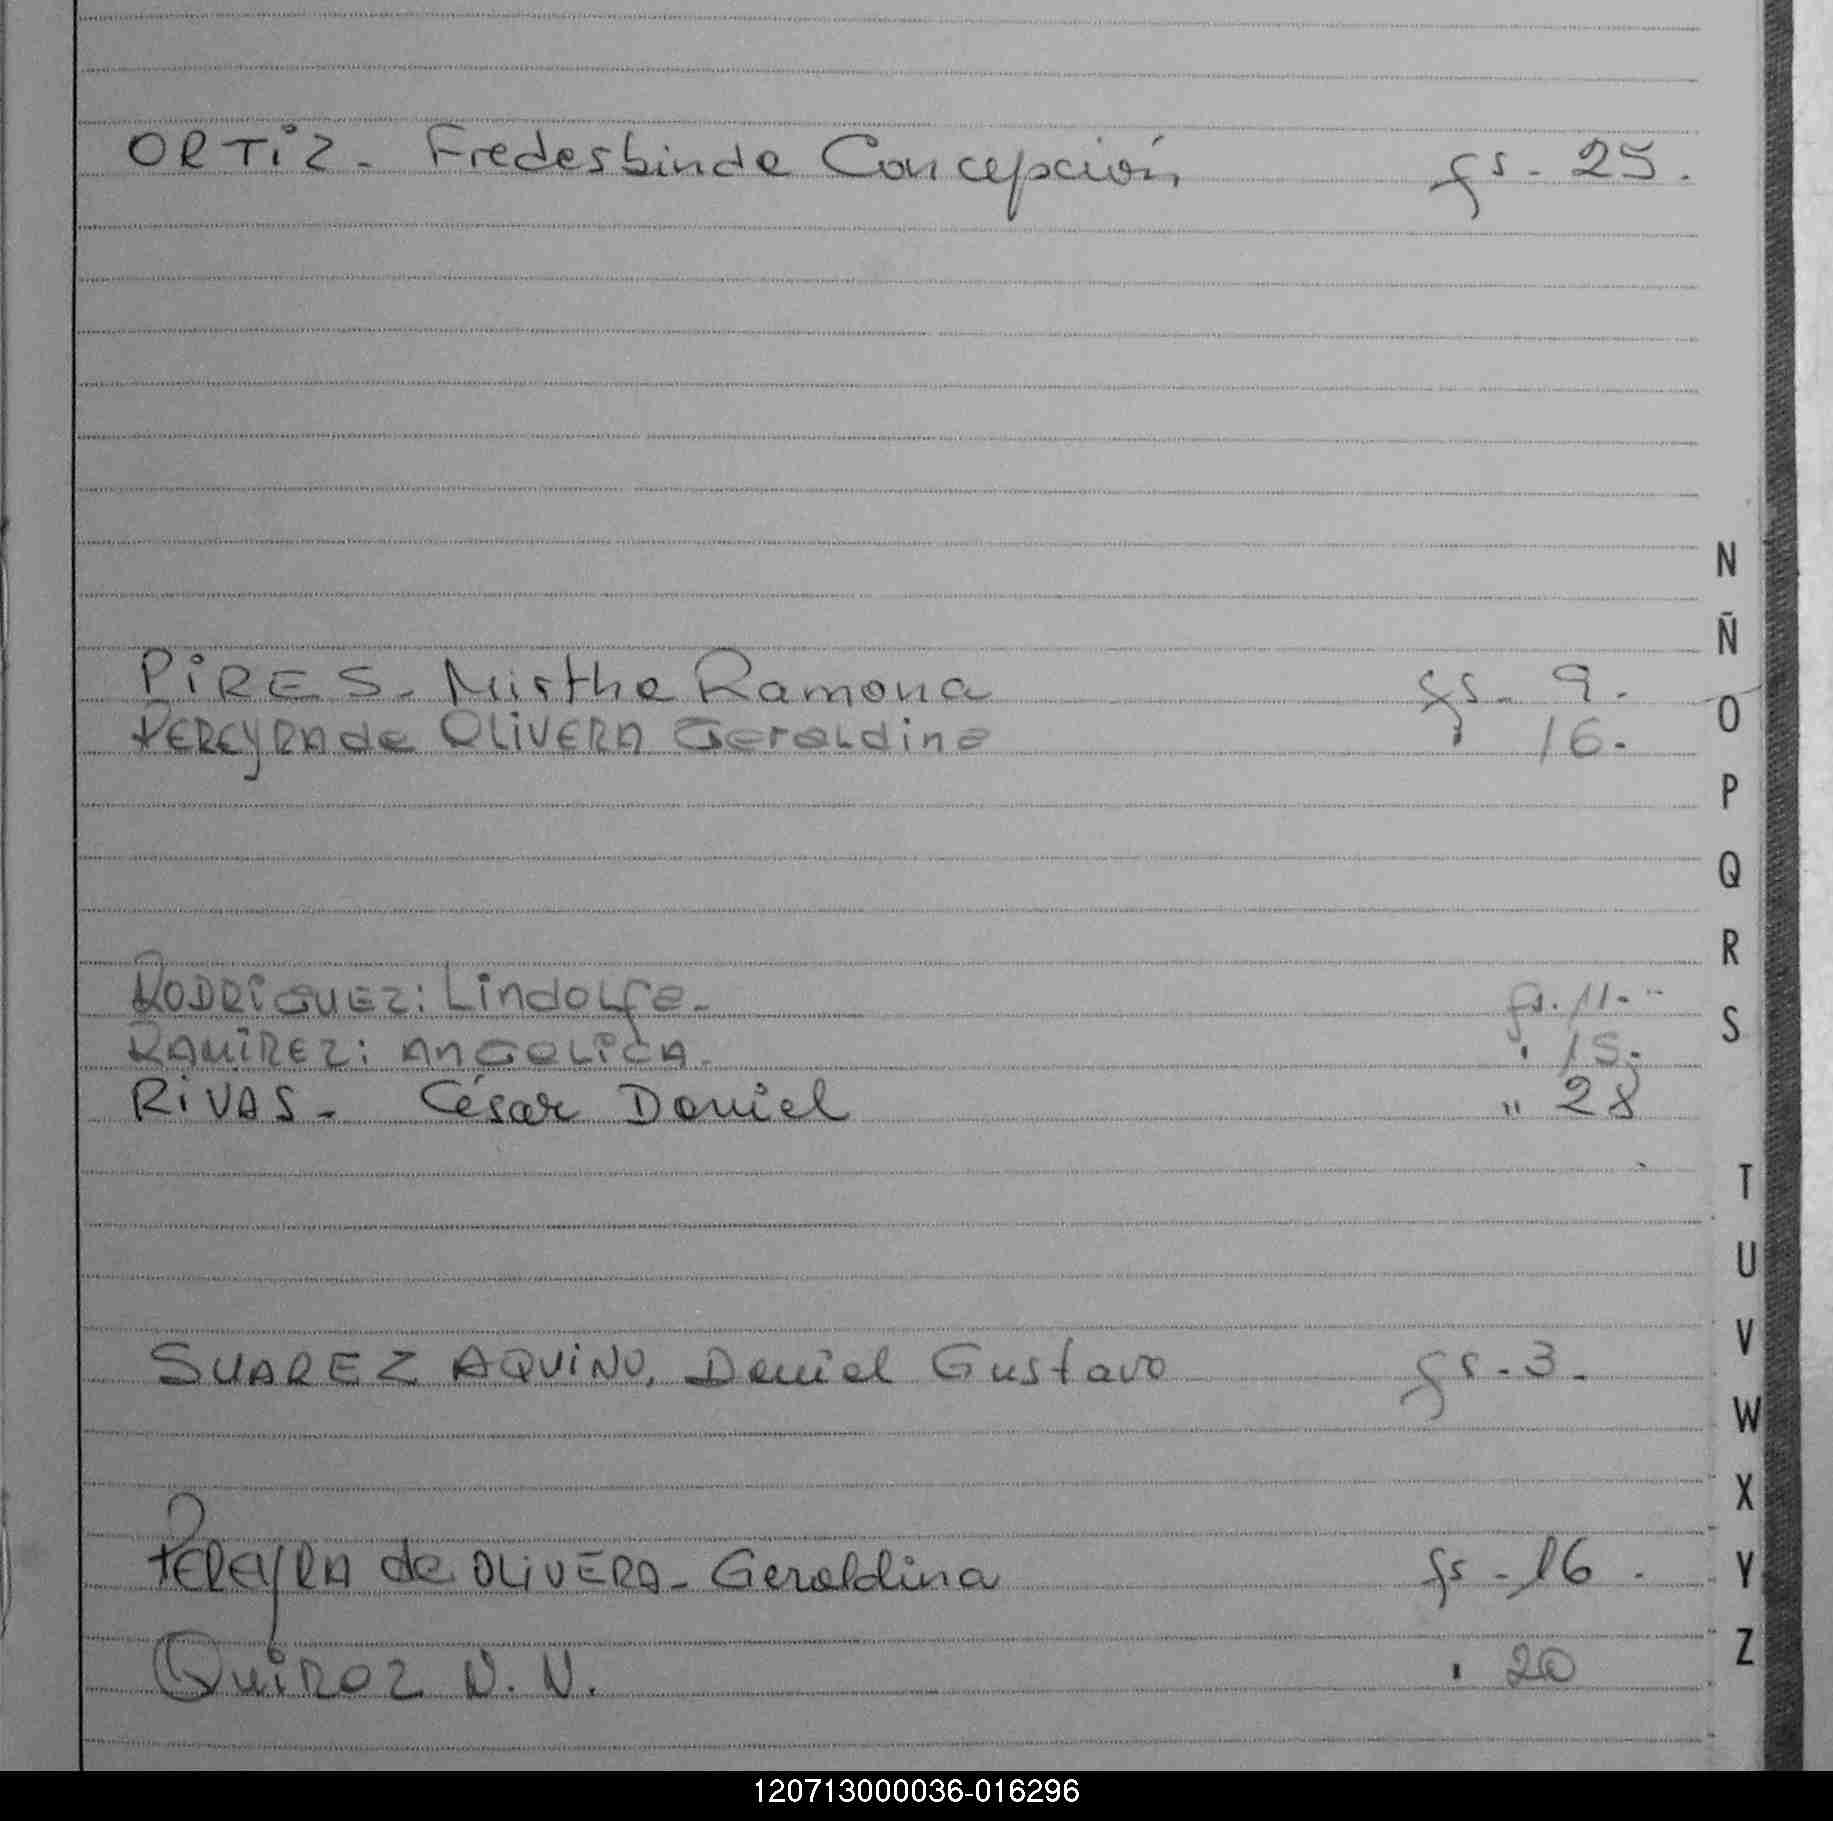 ORTiZ. Fredesbinda Concepción, fs. 25.
N
Ñ
PiRES. Mirtha Ramona fs. 9.
O
PEREYRA de OLiVERA Geraldina " 16.
P
Q
R
RODRiGUEZ: Lindolfa. fs. 11.
S
RAMiREZ: ANGELiCA. " 15.
RiVAS. César Daniel " 28
T
U
V
SUAREZ AQUiNO, Daniel Gustavo fs. 3.
W
X
PEREYRA de OLiVERA. Geraldina fs. 16.
Y
Z
QuiROZ N. N. " 20
120713000036-016296